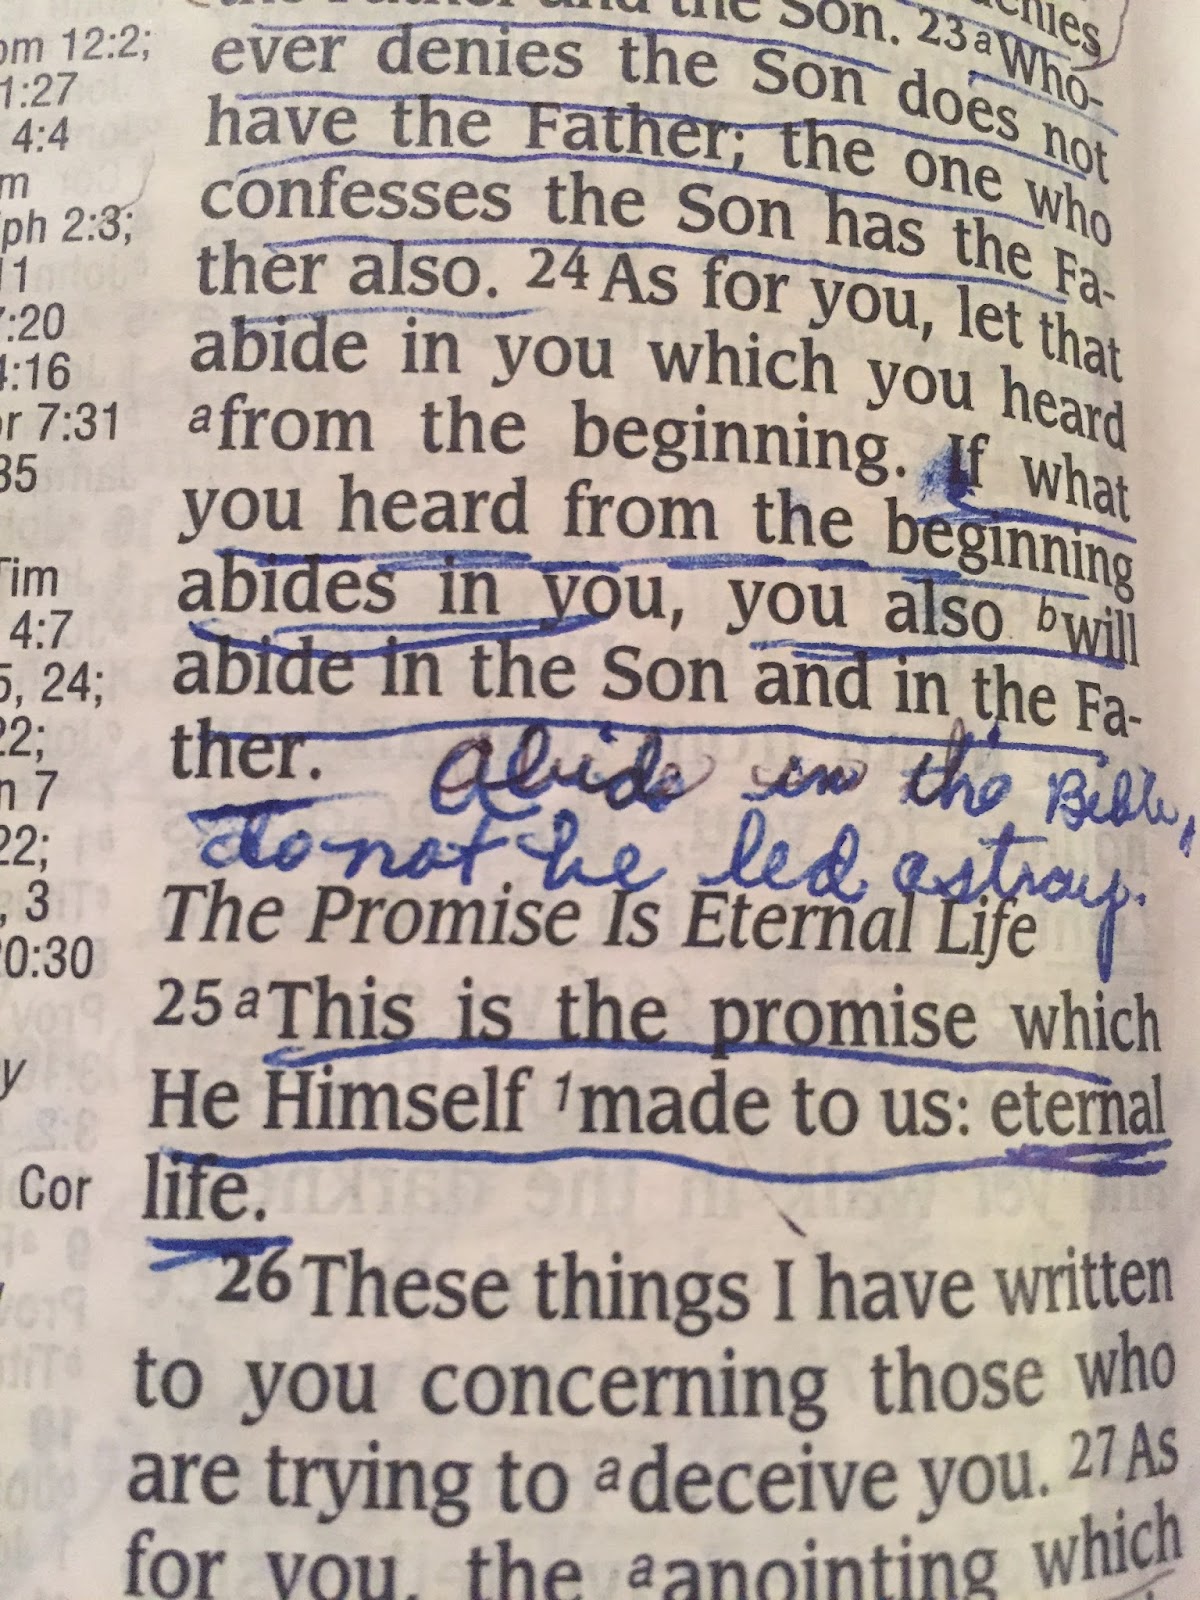 the Father and the Son. 23 aWho-
ever denies the Son does not
have the Father; the one who
confesses the Son has the Fa-
ther also. 24 As for you, let that
abide in you which you heard
afrom the beginning. If what
you heard from the beginning
abides in you, you also bwill
abide in the Son and in the Fa-
ther. abide in the Bible,
do not be led astray.
The Promise Is Eternal Life
25 aThis is the promise which
He Himself 1made to us: eternal
life.
26 These things I have written
to you concerning those who
are trying to adeceive you. 27 As
for you, the aanointing which
12:2;
1:27
4:4
2:3;
11
:20
4:16
7:31
35
Tim
4:7
5, 24;
22;
7
22;
, 3
20:30
y
Cor